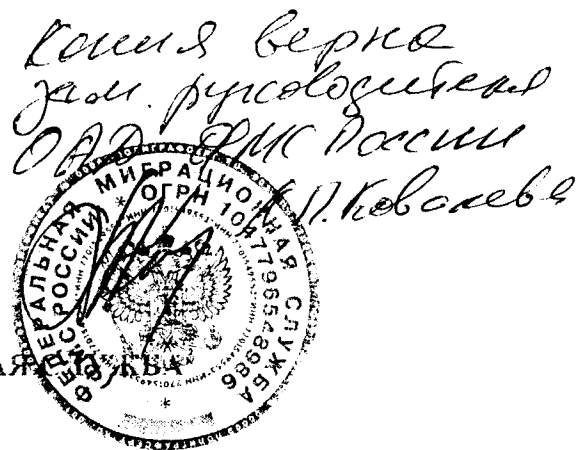 Копия верна
Зам. руководителя
ФМС России
П. Ковалева
ФЕДЕРАЛЬНАЯ МИГРАЦИОННАЯ СЛУЖБА
ФМС РОССИИ
ОГРН 1047796548986